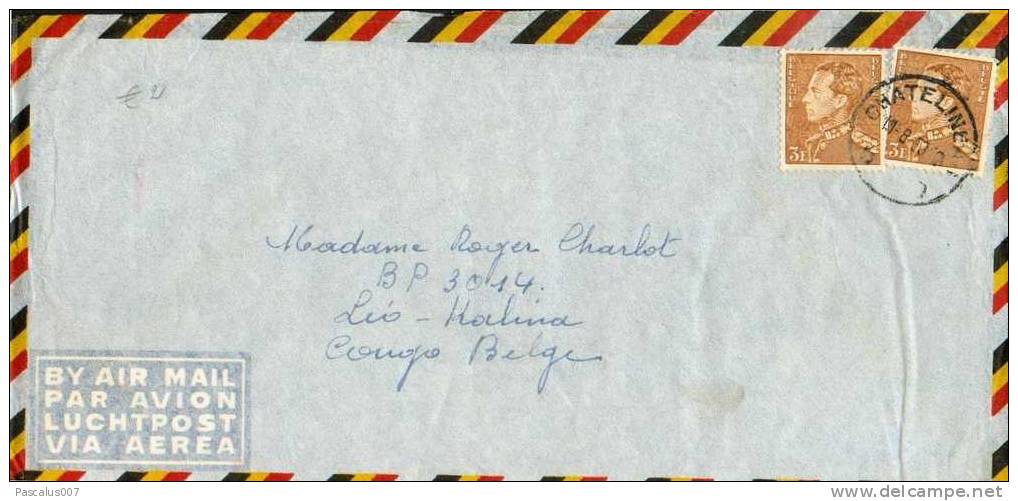 € 2
BELGIQUE
3F
BELGIQUE
3F
CHATELINEAU
Madame Roger Charlot
BP 3014.
Léo - Kalina
Congo Belge
BY AIR MAIL
PAR AVION
LUCHTPOST
VIA AEREA
Pascalus007
delcampe.net